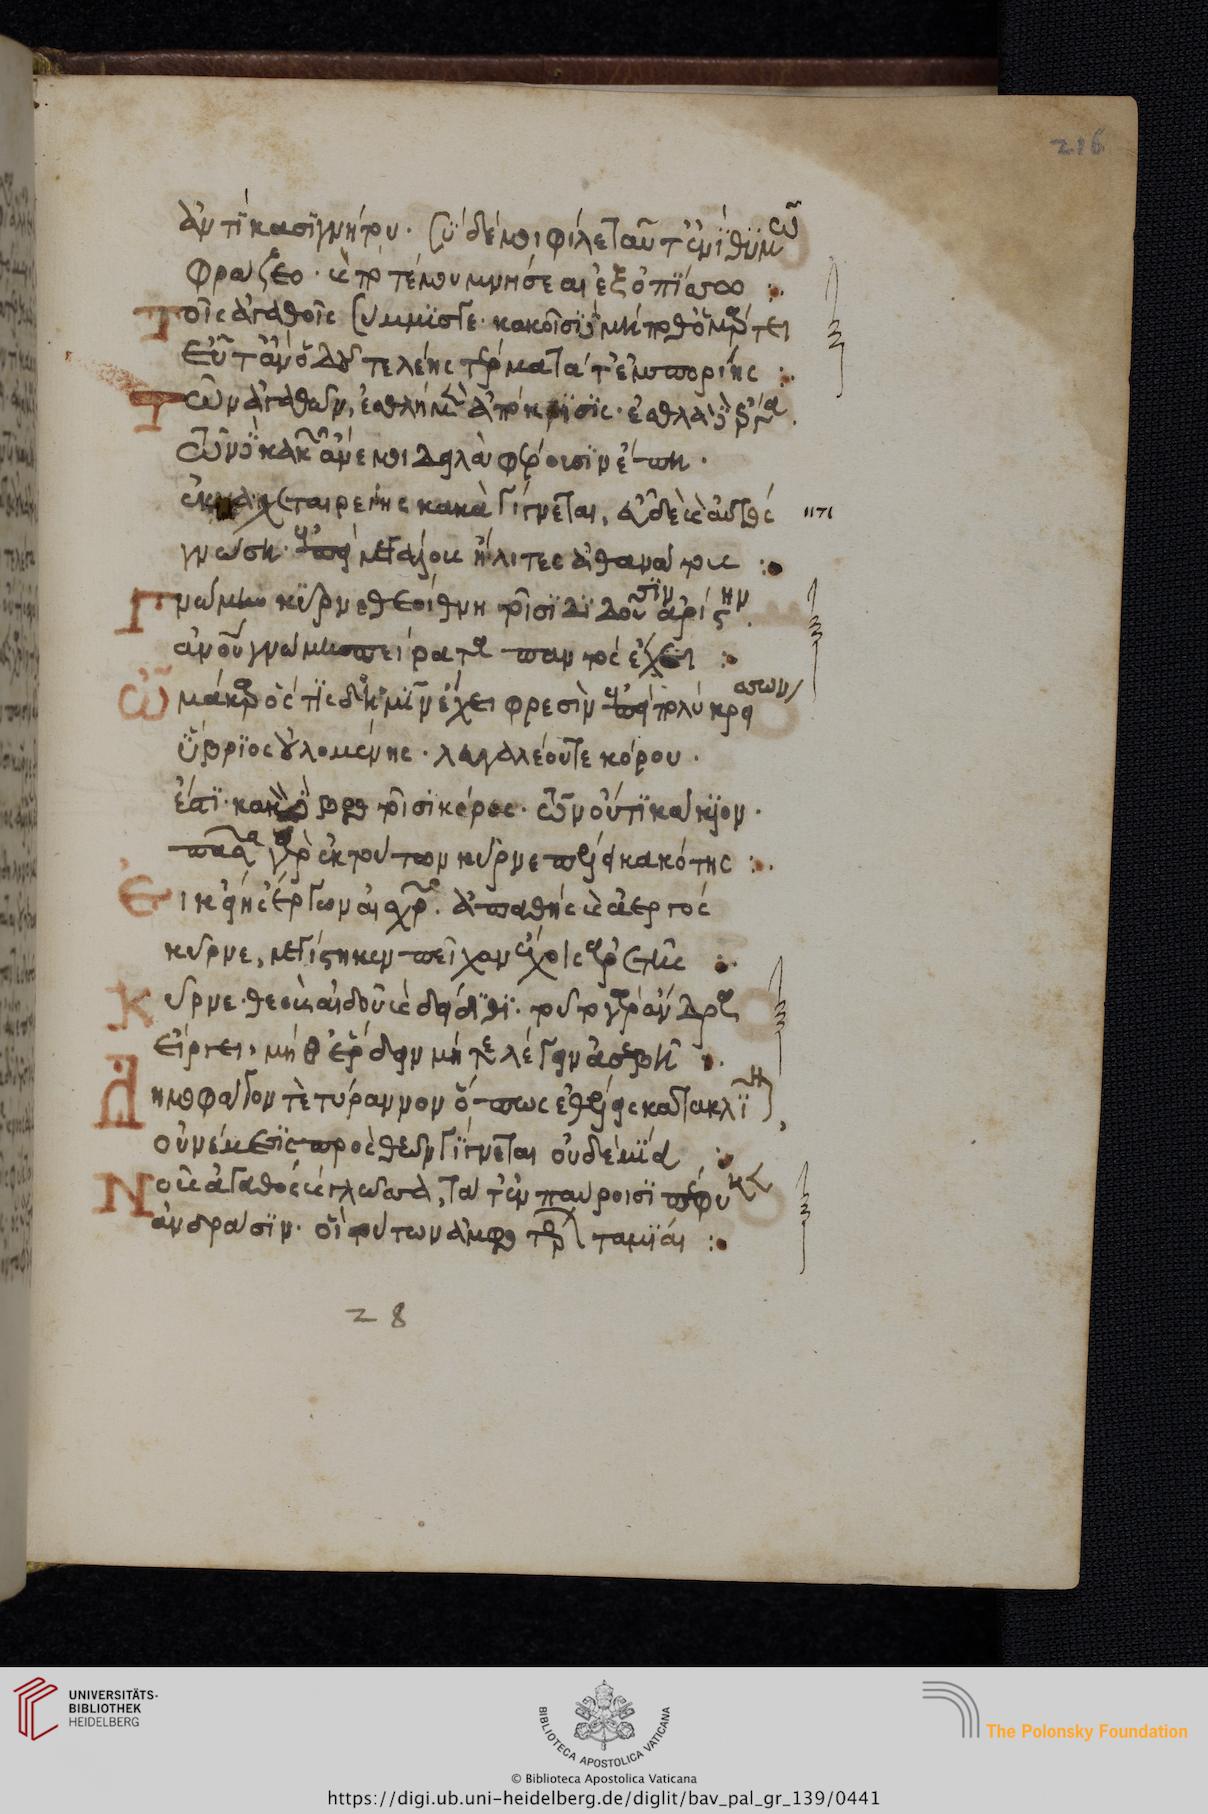 ἀντὶ κασϊγνήτου. σὺ δέ μοι φίλε ταῦτ' ἐνῒ θυμῶ
φράζεο. καὶ ποτέ μου μνήσεαι ἐξοπΐσω :.
Τοῖς ἀγαθοῖς σύμμισγε. κακοῖσι δὲ μήποθ' ὁμάρτει
εὖτ' ἂν ὁδοῦ τελέης τέρματά τ' ἐμπορίης :.
Τῶν ἀγαθῶν, ἐσθλὴ μὲν ἀπόκρισϊς. ἐσθλὰ δὲ ἔργα.
τῶν δὲ κακῶν ἄνεμοι δειλὰ φέρουσιν ἔπη.
ἐκ καχεταιρείης κακὰ γίγνεται, εὖ δὲ καὶ αὐτὸς
γνώση. ἐπεὶ μεγάλους ἤλιτες ἀθανάτους :
Γνώμην κύρνε θεοὶ θνητοῖσϊ διδοῦσϊν ἀρίστην.
ἀνθρώπου γνώμη πείρατα παντὸς ἔχει :
Ὦ μάκαρ ὅς τϊς δή μϊν ἔχει φρεσὶν ἐπεὶ πολὺ κρα
ὕβριος οὐλομένης. λαγαλέου τε κόρου.
ἐστϊ. κακὸν δὲ βροτοῖσϊ κόρος. τῶν οὔτϊ κάκϊον.
πᾶσα γὰρ ἐκ τούτων κύρνε πέλει κακότης :.
Εἰ κ' εἴης ἔργων αἰσχρῶν. ἀπαθὴς καὶ ἀεργὸς
κύρνε, μεγίστην κεν πεῖραν ἔχοις ἀρετῆς :.
Κύρνε. θεοὺς αἰδοῦ καὶ δείδϊθϊ. τοῦτο γὰρ ἄνδρα
εἴργει, μήθ' ἕρδειν μήτε λέγειν ἀσεβῆ :.
Δημοφάγον τὲ τύραννον ὅπως ἐθέλεις κατακλϊ
οὐ νέμεσϊς πρὸς θεῶν γΐγνεται οὐδεμϊά :
Νοῦς ἀγαθὸς καὶ γλῶσσὰ, τά τ' ἐν παύροισϊ πέφυκε
ἀνδράσϊν. οἳ τούτων ἀμφοτέρων ταμϊάι :
28
216
UNIVERSITÄTS-
BIBLIOTHEK
HEIDELBERG
BIBLIOTECA APOSTOLICA VATICANA
The Polonsky Foundation
© Biblioteca Apostolica Vaticana
https://digi.ub.uni-heidelberg.de/diglit/bav_pal_gr_139/0441